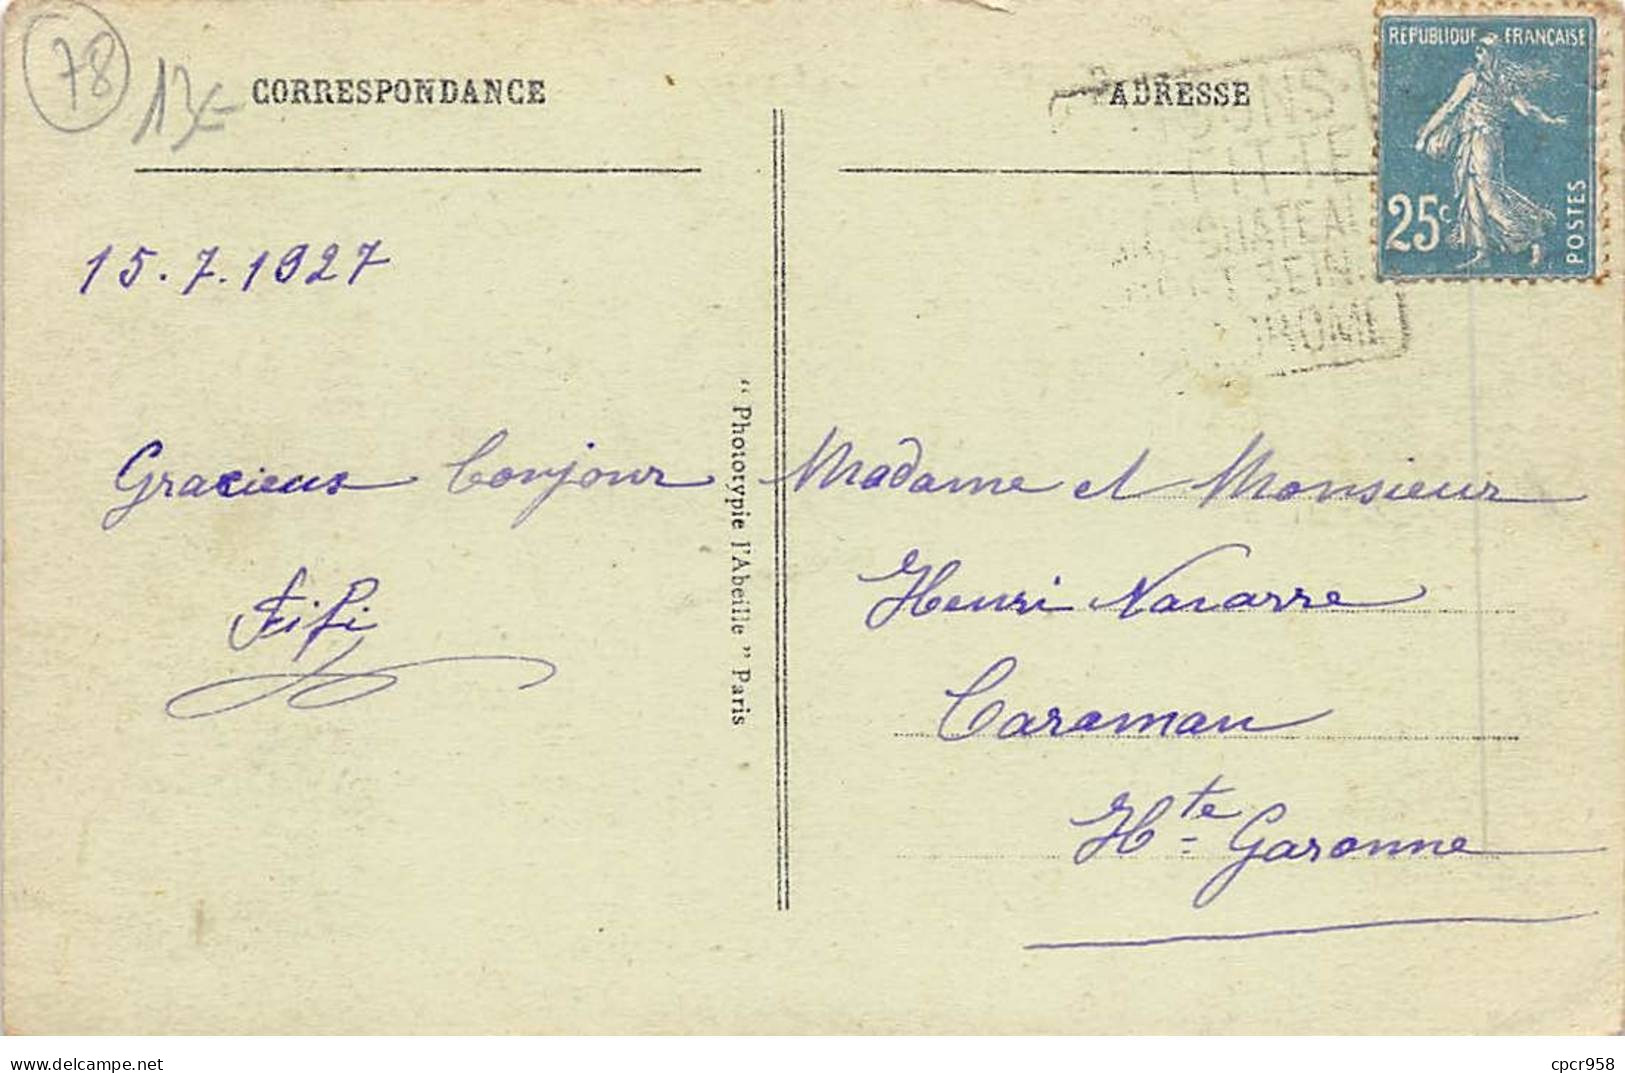 78
13€
CORRESPONDANCE
ADRESSE
REPUBLIQUE FRANÇAISE
25c
POSTES
15.7.1927
Gracieux bonjour
Fifi
"Phototypie l'Abeille" Paris
Madame et Monsieur
Henri Navarre
Caraman
Hte Garonne
delcampe.net
cpcr958